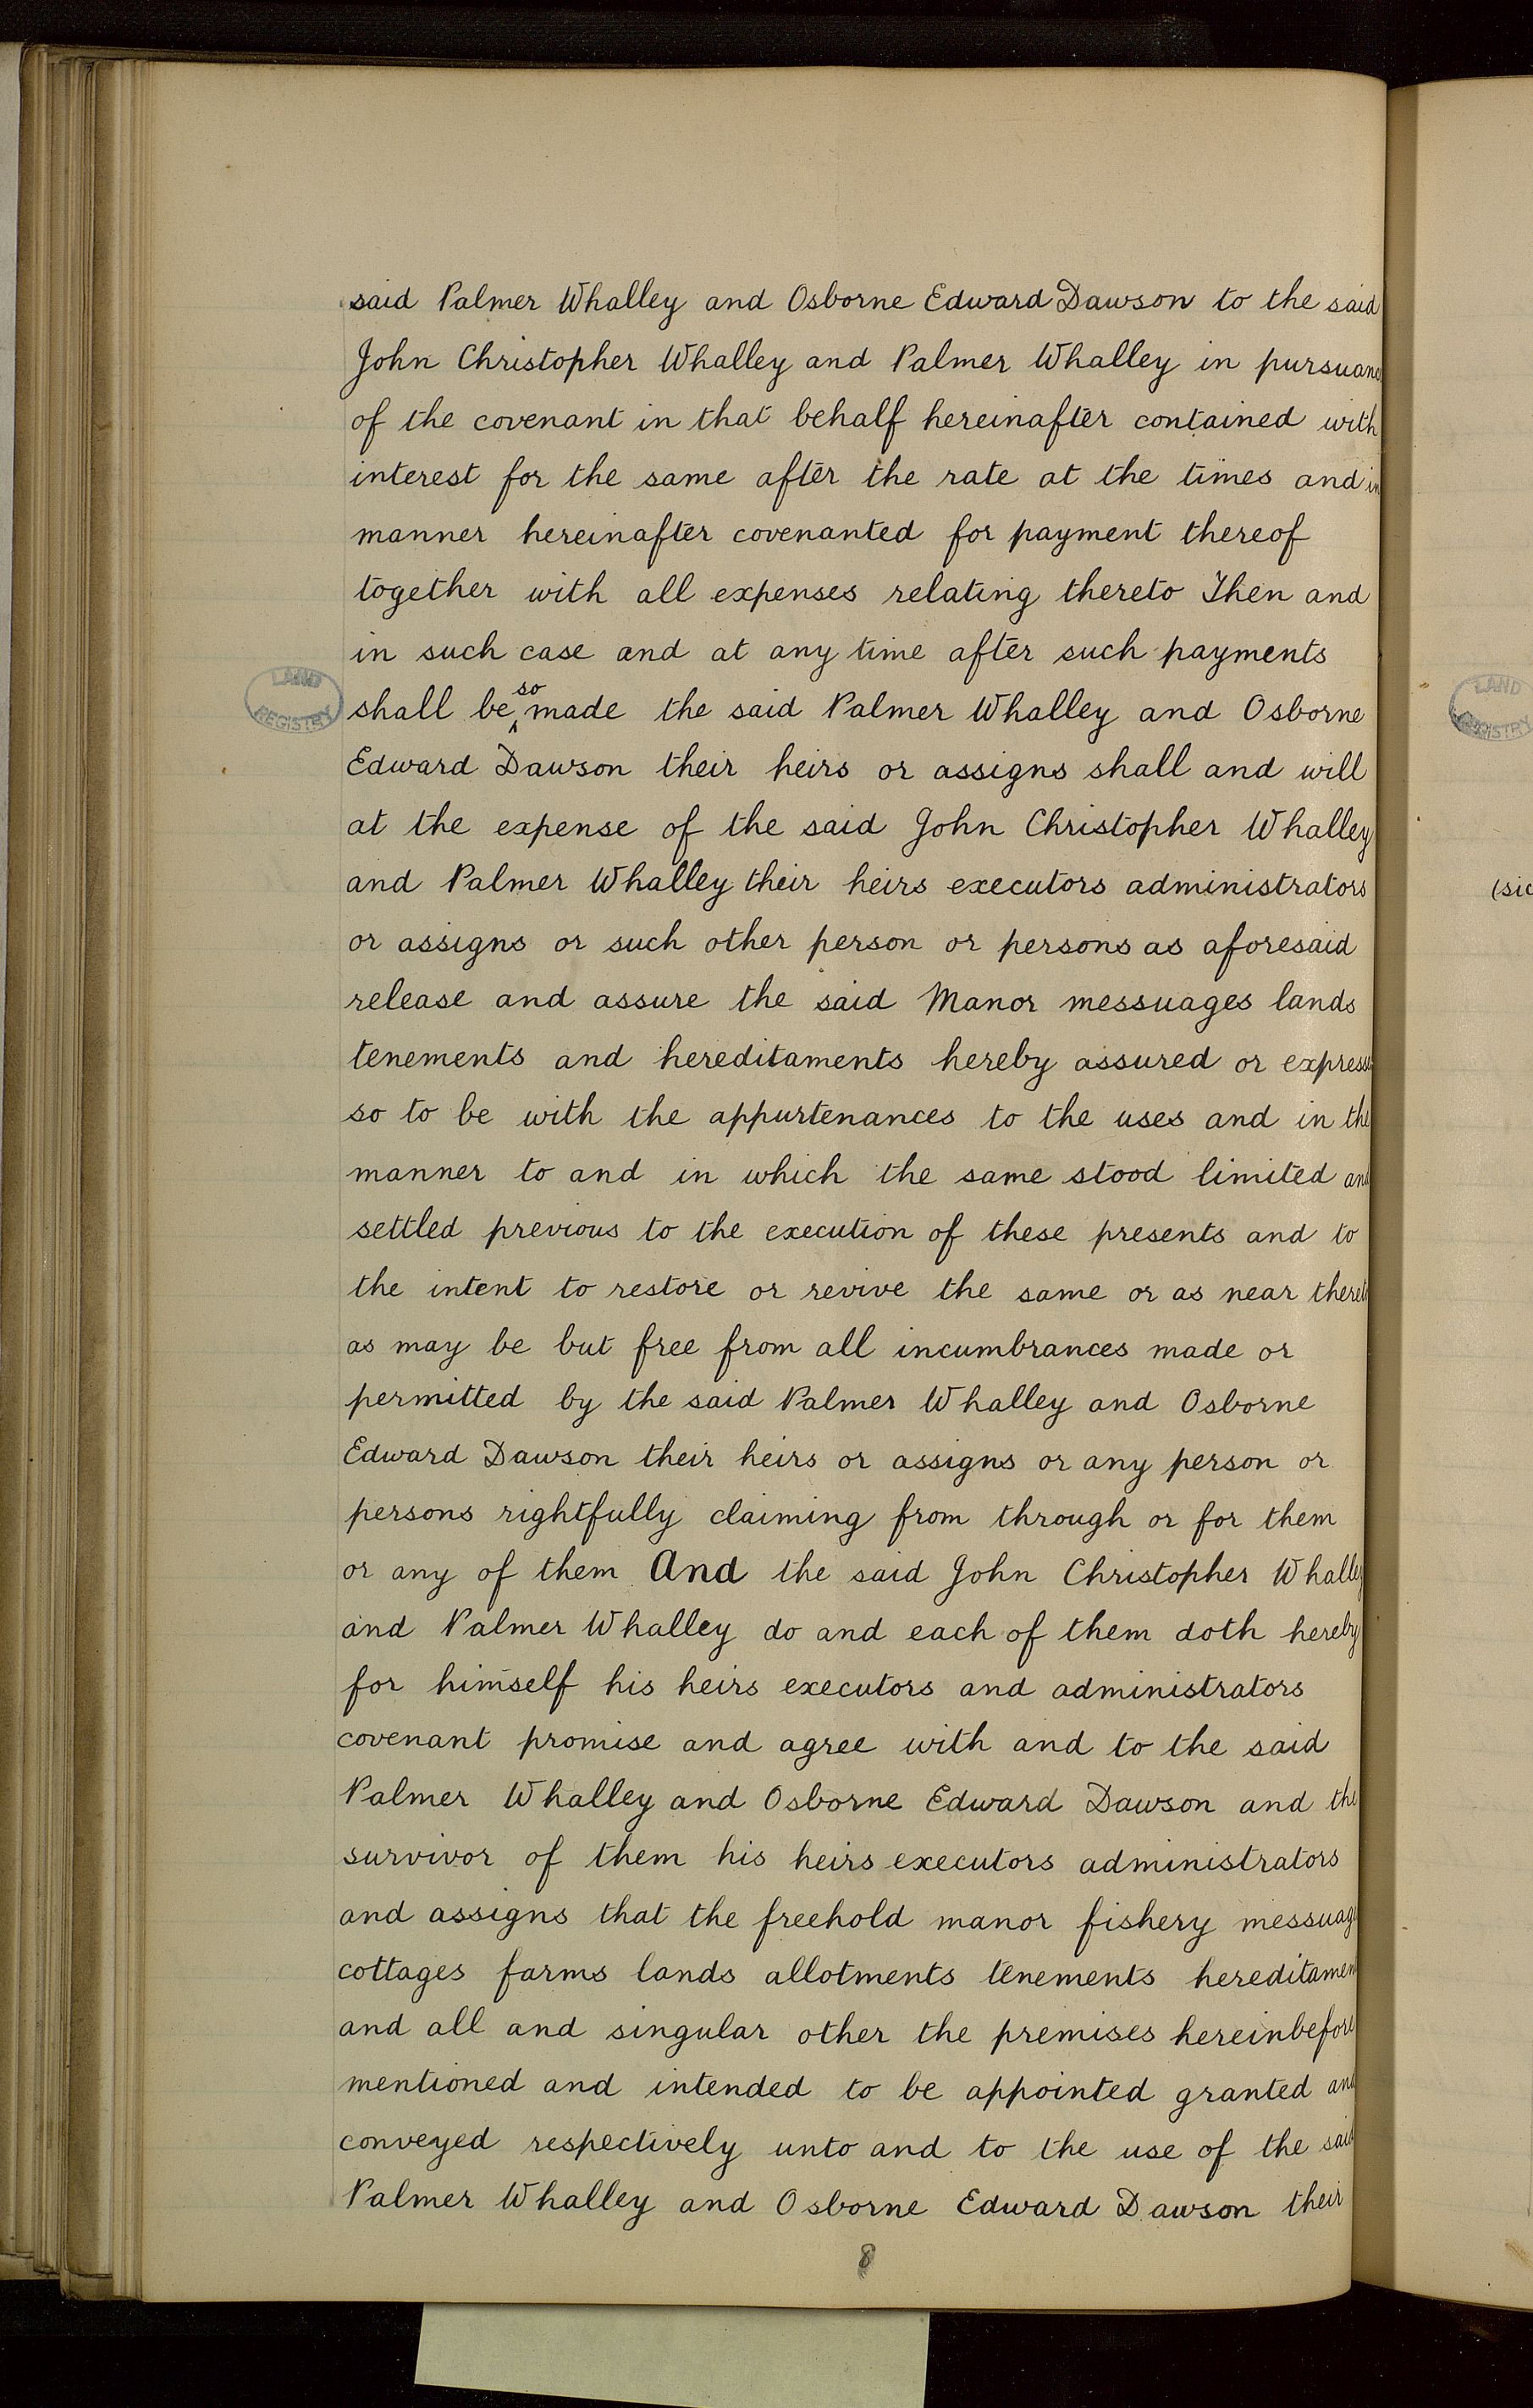 said Palmer Whalley and Osborne Edward Dawson to the said
John Christopher Whalley and Palmer Whalley in pursuanc
of the covenant in that behalf hereinafter contained with
interest for the same after the rate at the times and in
manner hereinafter covenanted for payment thereof
together with all expenses relating thereto Then and
in such case and at any time after such payments
LAND REGISTRY
shall be so made the said Palmer Whalley and Osborne
Edward Dawson their heirs or assigns shall and will
at the expense of the said John Christopher Whalley
and Palmer Whalley their heirs executors administrators
or assigns or such other person or persons as aforesaid
release and assure the said Manor messuages lands
tenements and hereditaments hereby assured or express
so to be with the appurtenances to the uses and in the
manner to and in which the same stood limited and
settled previous to the execution of these presents and to
the intent to restore or revive the same or as near theret
as may be but free from all incumbrances made or
permitted by the said Palmer Whalley and Osborne
Edward Dawson their heirs or assigns or any person or
persons rightfully claiming from through or for them
or any of them And the said John Christopher Whalley
and Palmer Whalley do and each of them doth hereby
for himself his heirs executors and administrators
covenant promise and agree with and to the said
Palmer Whalley and Osborne Edward Dawson and the
survivor of them his heirs executors administrators
and assigns that the freehold manor fishery messuag
cottages farms lands allotments tenements hereditamen
and all and singular other the premises hereinbefore
mentioned and intended to be appointed granted and
conveyed respectively unto and to the use of the said
Palmer Whalley and Osborne Edward Dawson their
8
LAND REGISTRY
(sic